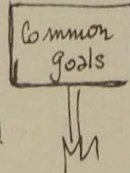 Common
goals